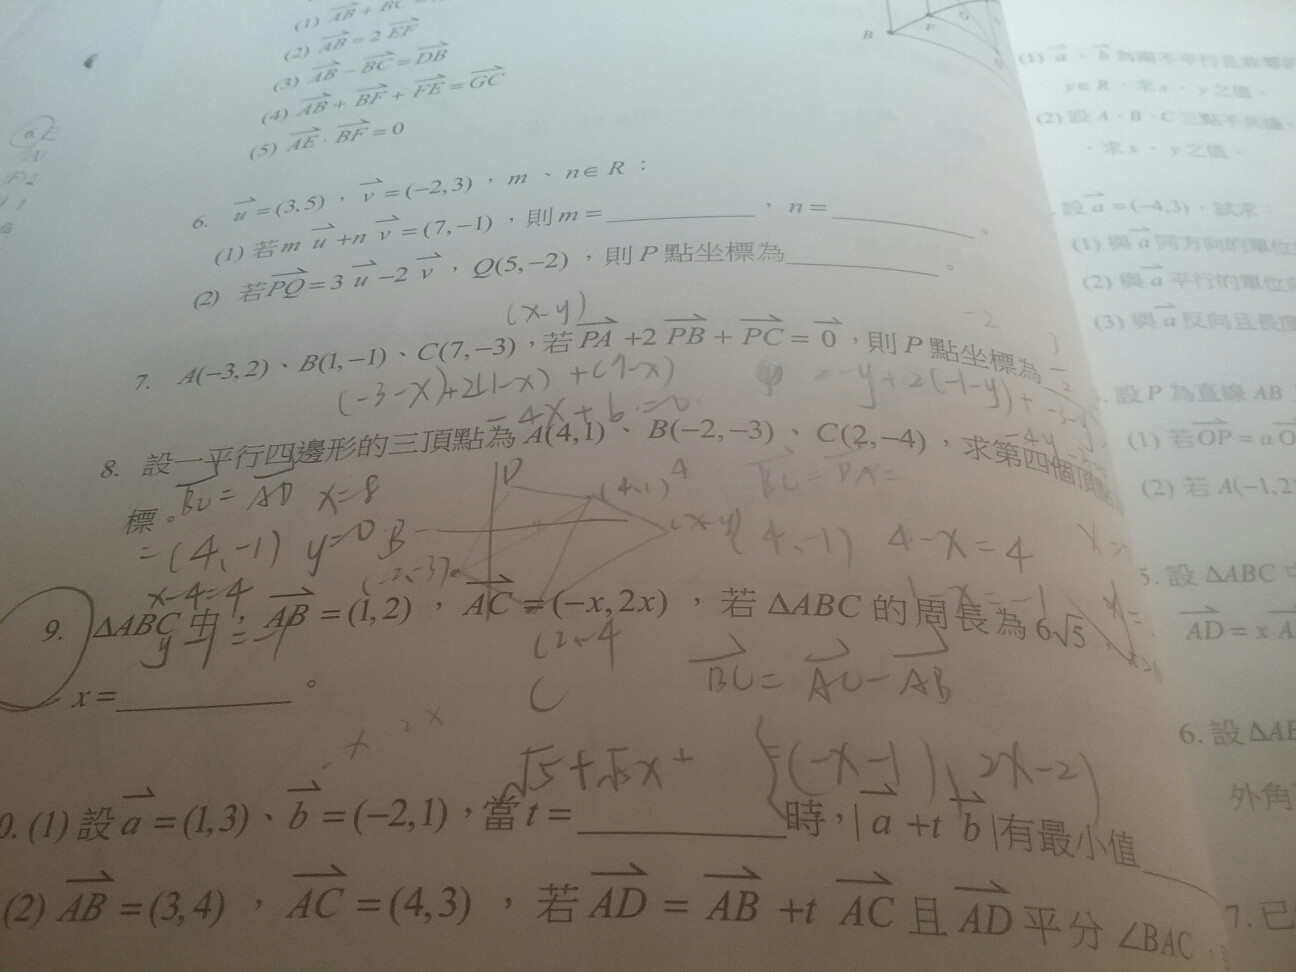 (1) AB + BC
(2) AB = 2 EF
(3) AB − BC = DB
(4) AB + BF + FE = GC
(5) AE · BF = 0
B
F
6. u = (3,5)，v = (−2,3)，m、n∈R：
(1) 若m u +n v = (7,−1)，則m = ________，n = ________。
(2) 若PQ = 3 u −2 v，Q(5,−2)，則P點坐標為________。
(x-y)
7. A(−3,2)、B(1,−1)、C(7,−3)，若PA +2 PB + PC = 0，則P點坐標為
(-3-x)+2(1-x)+(7-x)
-y+2(-1-y)+
-4x+6=0
8. 設一平行四邊形的三頂點為A(4,1)、B(−2,−3)、C(2,−4)，求第四個頂點
標。
BC = AD x=8
=(4,-1) y=0
x-4=4
y-1=-1
D
(4,1)
B
(-2,-3)
(x-y)
(2,-4
C
BC = DA =
(4,-1) 4-x=4
1-x=-1
9. ΔABC中，AB = (1,2)，AC = (−x,2x)，若ΔABC的周長為6√5
x = ________。
BC = AC - AB
-x 2x
√5+√5x+
(-x-1), 2x-2)
0. (1) 設a = (1,3)、b = (−2,1)，當t = ________時，| a +t b |有最小值
(2) AB = (3,4)，AC = (4,3)，若AD = AB +t AC且AD平分∠BAC
(1) a、b為兩不平行且非零的
y∈R，求x、y之值。
(2) 設A、B、C三點不共線，
求x、y之值。
設a = (−4,3)，試求：
(1) 與a同方向的單位
(2) 與a平行的單位
(3) 與a反向且長度
設P為直線AB
(1) 若OP = a O
(2) 若A(−1,2
5. 設ΔABC
AD = x A
6. 設ΔAB
外角
7. 已